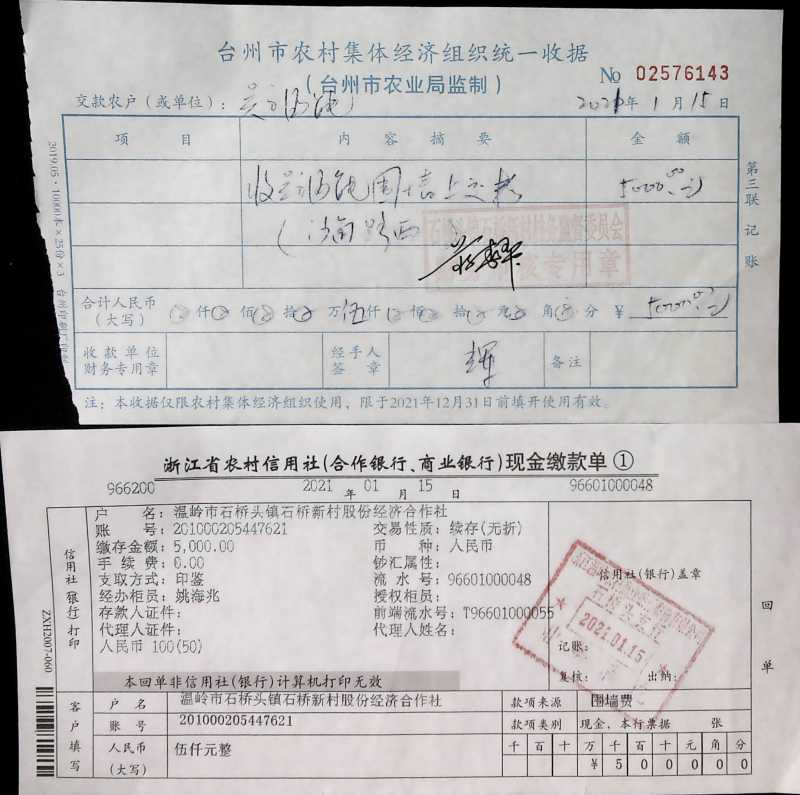 台州市农村集体经济组织统一收据
（台州市农业局监制）
No 02576143
交款农户（或单位）：
2021年1月15日
项目 内容摘要 金额
5000.00
石桥头镇石桥新村村务监督委员会
专用章
合计人民币（大写） 仟 佰 拾 万伍仟 佰 拾 元 角 分 ¥ 5000.00
收款单位财务专用章 经手人签章 辉 备注
注：本收据仅限农村集体经济组织使用，限于2021年12月31日前填开使用有效。
第三联 记账
2019.05·10000本×25份×3
浙江省农村信用社(合作银行、商业银行)现金缴款单①
966200 2021年01月15日 96601000048
户 名：温岭市石桥头镇石桥新村股份经济合作社
账 号：201000205447621 交易性质：续存(无折)
缴存金额：5,000.00 币 种：人民币
手 续 费：0.00 钞汇属性：
支取方式：印鉴 流 水 号：96601000048
经办柜员：姚海兆 授权柜员：
存款人证件： 前端流水号：T96601000055
代理人证件： 代理人姓名：
人民币 100(50)
信用社(银行)打印
信用社(银行)盖章
2021.01.15
记账：
复核： 出纳：
本回单非信用社(银行)计算机打印无效
回单
ZXH2007-060
客户填写
户 名 温岭市石桥头镇石桥新村股份经济合作社 款项来源 围墙费
账 号 201000205447621 款项类别 现金、本行票据 张
人民币（大写） 伍仟元整 千百十万千百十元角分
¥500000